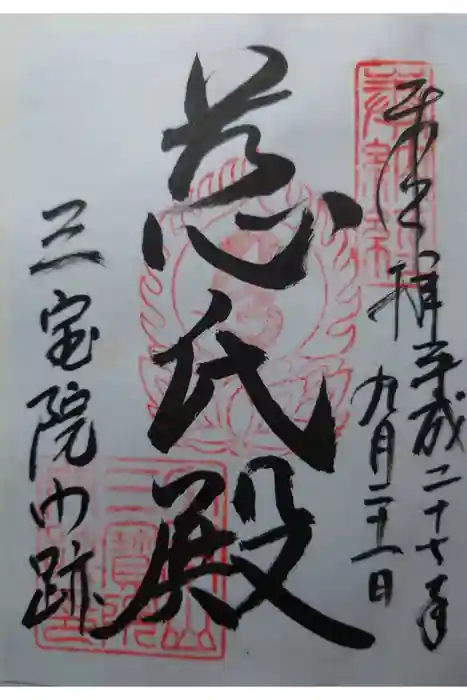 奉拝
平成二十七年
九月二十一日
慈氏殿
三宝院門跡
三寶院